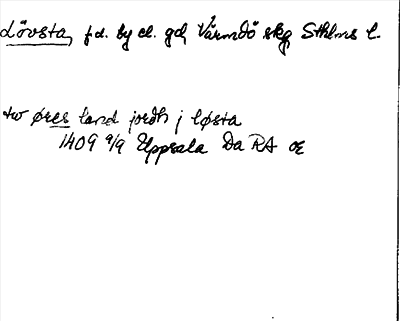 Lövsta, f.d. by el. gd, Värmdö skg, Sthlms l.
tw øres land jordh j løsta
1409 9/9 Uppsala Da RA or